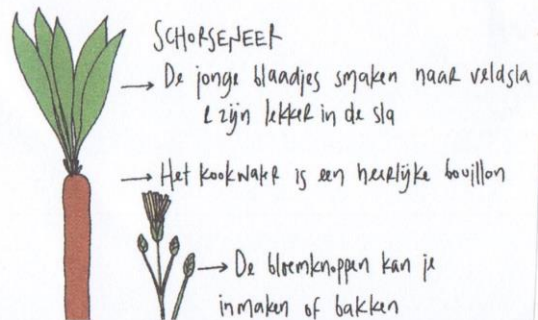 SCHORSENEER
→ De jonge blaadjes smaken naar veldsla
& zijn lekker in de sla
→ Het kookwater is een heerlijke bouillon
→ De bloemknoppen kan je
inmaken of bakken